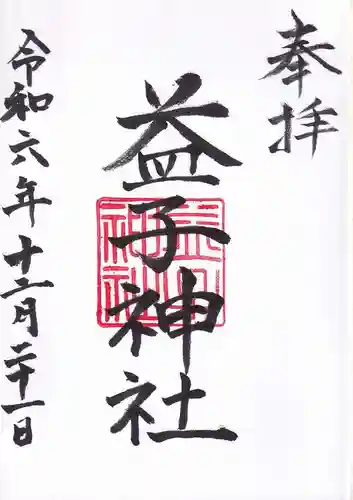 奉拝
益子神社
令和六年十二月二十一日